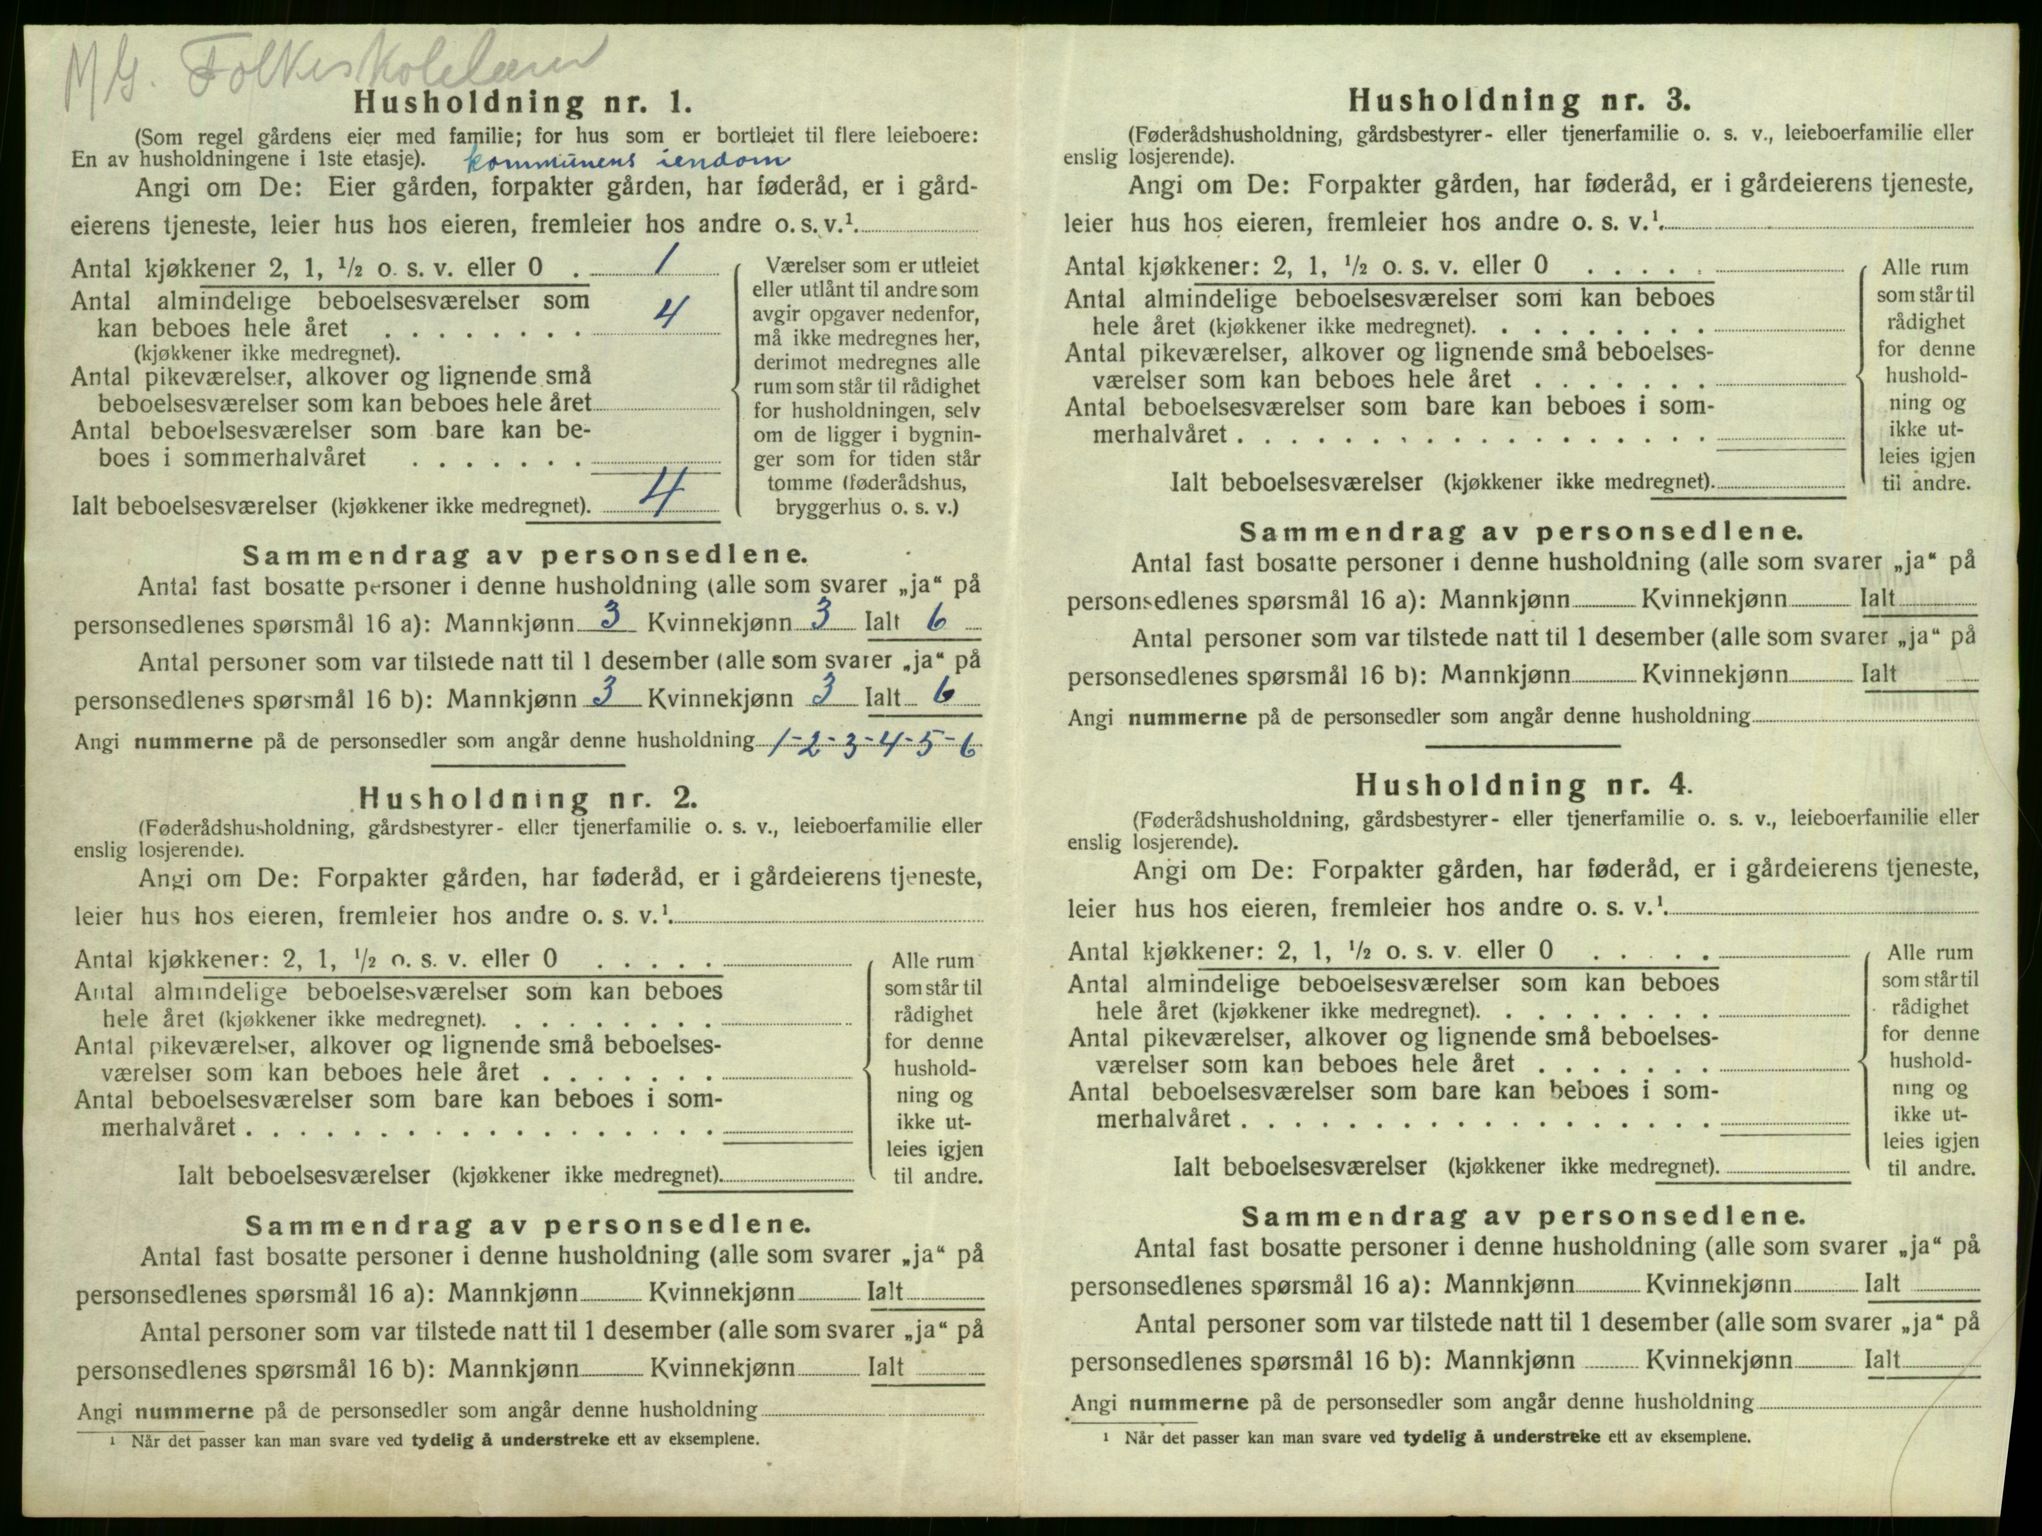 M G. Folkeskolelærer
Husholdning nr. 1.
(Som regel gårdens eier med familie; for hus som er bortleiet til flere leieboere:
En av husholdningene i 1ste etasje). kommunens iendom
Angi om De: Eier gården, forpakter gården, har føderåd, er i gård-
eierens tjeneste, leier hus hos eieren, fremleier hos andre o. s. v.¹.
Antal kjøkkener 2, 1, ½ o. s. v. eller 0 . 1
Antal almindelige beboelsesværelser som
kan beboes hele året . . . . . . . . 4
(kjøkkener ikke medregnet).
Antal pikeværelser, alkover og lignende små
beboelsesværelser som kan beboes hele året
Antal beboelsesværelser som bare kan be-
boes i sommerhalvåret . . . . . . .
Ialt beboelsesværelser (kjøkkener ikke medregnet). 4
Værelser som er utleiet
eller utlånt til andre som
avgir opgaver nedenfor,
må ikke medregnes her,
derimot medregnes alle
rum som står til rådighet
for husholdningen, selv
om de ligger i bygnin-
ger som for tiden står
tomme (føderådshus,
bryggerhus o. s. v.)
Sammendrag av personsedlene.
Antal fast bosatte personer i denne husholdning (alle som svarer „ja“ på
personsedlenes spørsmål 16 a): Mannkjønn 3 Kvinnekjønn 3 Ialt 6
Antal personer som var tilstede natt til 1 desember (alle som svarer „ja“ på
personsedlenes spørsmål 16 b): Mannkjønn 3 Kvinnekjønn 3 Ialt 6
Angi nummerne på de personsedler som angår denne husholdning 1-2-3-4-5-6
Husholdning nr. 2.
(Føderådshusholdning, gårdsbestyrer- eller tjenerfamilie o. s. v., leieboerfamilie eller
enslig losjerende).
Angi om De: Forpakter gården, har føderåd, er i gårdeierens tjeneste,
leier hus hos eieren, fremleier hos andre o. s. v.¹.
Antal kjøkkener: 2, 1, ½ o. s. v. eller 0 . . . . .
Antal almindelige beboelsesværelser som kan beboes
hele året (kjøkkener ikke medregnet). . . . . . . . .
Antal pikeværelser, alkover og lignende små beboelses-
værelser som kan beboes hele året . . . . . . .
Antal beboelsesværelser som bare kan beboes i som-
merhalvåret . . . . . . . . . . . . . . . . . .
Ialt beboelsesværelser (kjøkkener ikke medregnet).
Alle rum
som står til
rådighet
for denne
hushold-
ning og
ikke ut-
leies igjen
til andre.
Sammendrag av personsedlene.
Antal fast bosatte personer i denne husholdning (alle som svarer „ja“ på
personsedlenes spørsmål 16 a): Mannkjønn Kvinnekjønn Ialt
Antal personer som var tilstede natt til 1 desember (alle som svarer „ja“ på
personsedlenes spørsmål 16 b): Mannkjønn Kvinnekjønn Ialt
Angi nummerne på de personsedler som angår denne husholdning
¹ Når det passer kan man svare ved tydelig å understreke ett av eksemplene.
Husholdning nr. 3.
(Føderådshusholdning, gårdsbestyrer- eller tjenerfamilie o. s. v., leieboerfamilie eller
enslig losjerende).
Angi om De: Forpakter gården, har føderåd, er i gårdeierens tjeneste,
leier hus hos eieren, fremleier hos andre o. s. v.¹.
Antal kjøkkener: 2, 1, ½ o. s. v. eller 0 . . . . .
Antal almindelige beboelsesværelser som kan beboes
hele året (kjøkkener ikke medregnet). . . . . . . . .
Antal pikeværelser, alkover og lignende små beboelses-
værelser som kan beboes hele året . . . . . . .
Antal beboelsesværelser som bare kan beboes i som-
merhalvåret . . . . . . . . . . . . . . . . . .
Ialt beboelsesværelser (kjøkkener ikke medregnet).
Alle rum
som står til
rådighet
for denne
hushold-
ning og
ikke ut-
leies igjen
til andre.
Sammendrag av personsedlene.
Antal fast bosatte personer i denne husholdning (alle som svarer „ja“ på
personsedlenes spørsmål 16 a): Mannkjønn Kvinnekjønn Ialt
Antal personer som var tilstede natt til 1 desember (alle som svarer „ja“ på
personsedlenes spørsmål 16 b): Mannkjønn Kvinnekjønn Ialt
Angi nummerne på de personsedler som angår denne husholdning
Husholdning nr. 4.
(Føderådshusholdning, gårdsbestyrer- eller tjenerfamilie o. s. v., leieboerfamilie eller
enslig losjerende).
Angi om De: Forpakter gården, har føderåd, er i gårdeierens tjeneste,
leier hus hos eieren, fremleier hos andre o. s. v.¹.
Antal kjøkkener: 2, 1, ½ o. s. v. eller 0 . . . . .
Antal almindelige beboelsesværelser som kan beboes
hele året (kjøkkener ikke medregnet). . . . . . . . .
Antal pikeværelser, alkover og lignende små beboelses-
værelser som kan beboes hele året . . . . . . .
Antal beboelsesværelser som bare kan beboes i som-
merhalvåret . . . . . . . . . . . . . . . . . .
Ialt beboelsesværelser (kjøkkener ikke medregnet).
Alle rum
som står til
rådighet
for denne
hushold-
ning og
ikke ut-
leies igjen
til andre.
Sammendrag av personsedlene.
Antal fast bosatte personer i denne husholdning (alle som svarer „ja“ på
personsedlenes spørsmål 16 a): Mannkjønn Kvinnekjønn Ialt
Antal personer som var tilstede natt til 1 desember (alle som svarer „ja“ på
personsedlenes spørsmål 16 b): Mannkjønn Kvinnekjønn Ialt
Angi nummerne på de personsedler som angår denne husholdning
¹ Når det passer kan man svare ved tydelig å understreke ett av eksemplene.